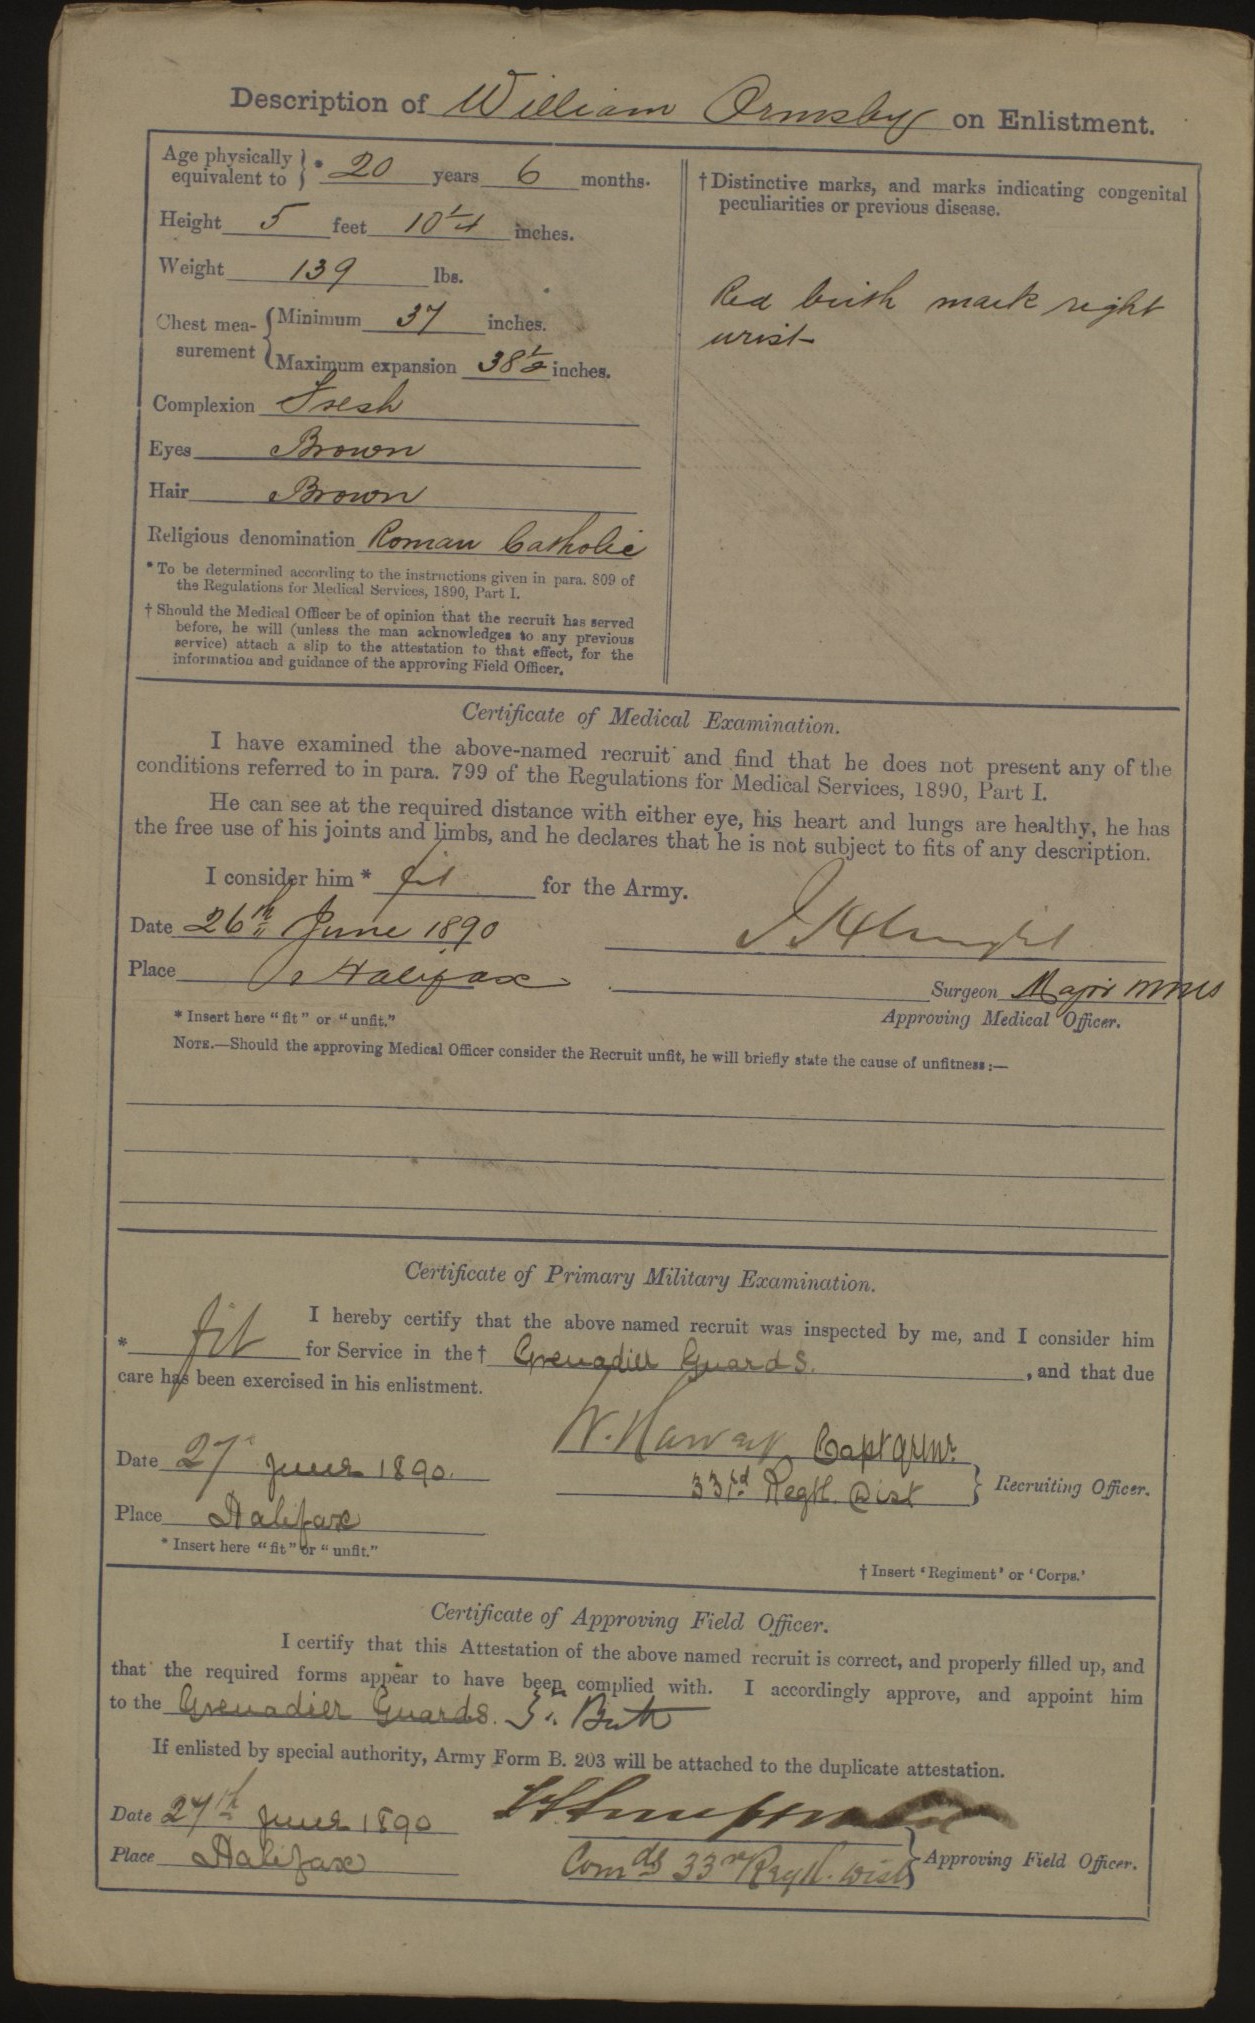 Description of William Ormsby on Enlistment.
Age physically equivalent to } * 20 years 6 months.
Height 5 feet 10 1/4 inches.
Weight 139 lbs.
Chest measurement { Minimum 37 inches.
Maximum expansion 38 1/2 inches.
Complexion Fresh
Eyes Brown
Hair Brown
Religious denomination Roman Catholic
* To be determined according to the instructions given in para. 809 of
the Regulations for Medical Services, 1890, Part I.
† Should the Medical Officer be of opinion that the recruit has served
before, he will (unless the man acknowledges to any previous
service) attach a slip to the attestation to that effect, for the
information and guidance of the approving Field Officer.
† Distinctive marks, and marks indicating congenital
peculiarities or previous disease.
Red birth mark right
wrist
Certificate of Medical Examination.
I have examined the above-named recruit and find that he does not present any of the
conditions referred to in para. 799 of the Regulations for Medical Services, 1890, Part I.
He can see at the required distance with either eye, his heart and lungs are healthy, he has
the free use of his joints and limbs, and he declares that he is not subject to fits of any description.
I consider him * fit for the Army.
Date 26th June 1890
Place Halifax
Surgeon Major
Approving Medical Officer.
* Insert here "fit" or "unfit."
NOTE.—Should the approving Medical Officer consider the Recruit unfit, he will briefly state the cause of unfitness:—
Certificate of Primary Military Examination.
I hereby certify that the above named recruit was inspected by me, and I consider him
* fit for Service in the † Grenadier Guards. , and that due
care has been exercised in his enlistment.
Date 27 June 1890.
Capt
33rd Regtl. Dist } Recruiting Officer.
Place Halifax
* Insert here "fit" or "unfit."
† Insert 'Regiment' or 'Corps.'
Certificate of Approving Field Officer.
I certify that this Attestation of the above named recruit is correct, and properly filled up, and
that the required forms appear to have been complied with. I accordingly approve, and appoint him
to the Grenadier Guards.
If enlisted by special authority, Army Form B. 203 will be attached to the duplicate attestation.
Date 27th June 1890
Place Halifax
Comdg 33rd Regtl. Dist } Approving Field Officer.